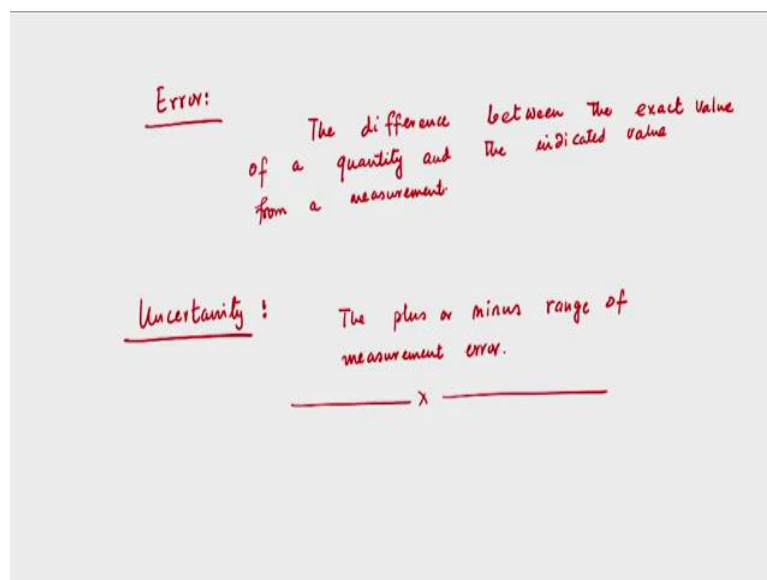 Error:
The difference between the exact value
of a quantity and the indicated value
from a measurement.
Uncertainity :
The plus or minus range of
measurement error.
x